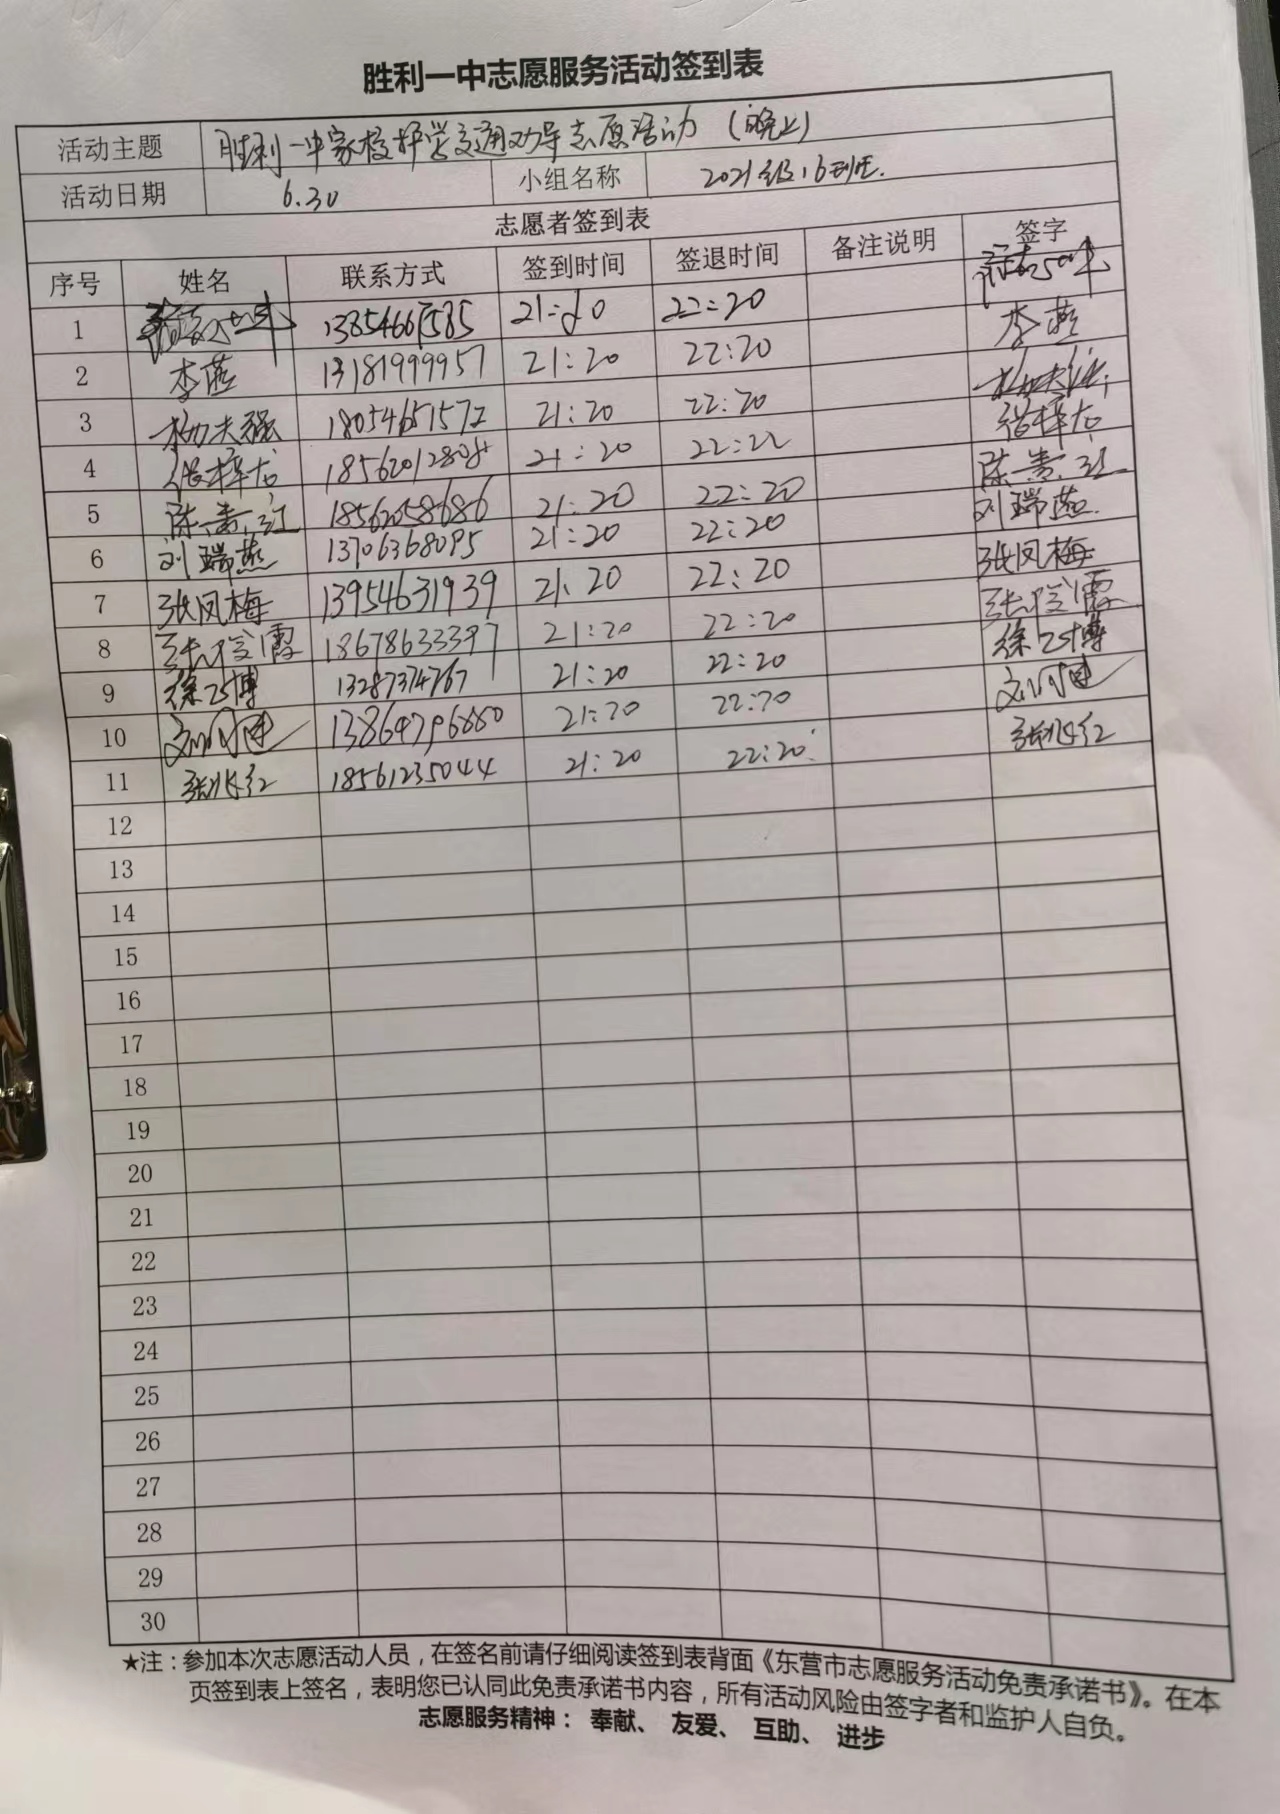 胜利一中志愿服务活动签到表
活动主题 胜利一中家校护学交通劝导志愿活动(晚上)
活动日期 6.30 小组名称 2021级16班
志愿者签到表
序号 姓名 联系方式 签到时间 签退时间 备注说明 签字
1 22:20
2 李燕 13181999957 21:20 22:20 李燕
3 杨夫强 18054651572 21:20 22:20
4 21:20 22:22
5 陈贵江 18562058686 21:20 22:20 陈贵江
6 刘瑞燕 13706368095 21:20 22:20 刘瑞燕
7 张凤梅 13954631939 21:20 22:20 张凤梅
8 18678633397 21:20 22:20
9 13287374767 21:20 22:20
10 21:20 22:20
11 18561235044 21:20 22:20
12
13
14
15
16
17
18
19
20
21
22
23
24
25
26
27
28
29
30
★注:参加本次志愿活动人员,在签名前请仔细阅读签到表背面《东营市志愿服务活动免责承诺书》。在本
页签到表上签名,表明您已认同此免责承诺书内容,所有活动风险由签字者和监护人自负。
志愿服务精神: 奉献、 友爱、 互助、 进步